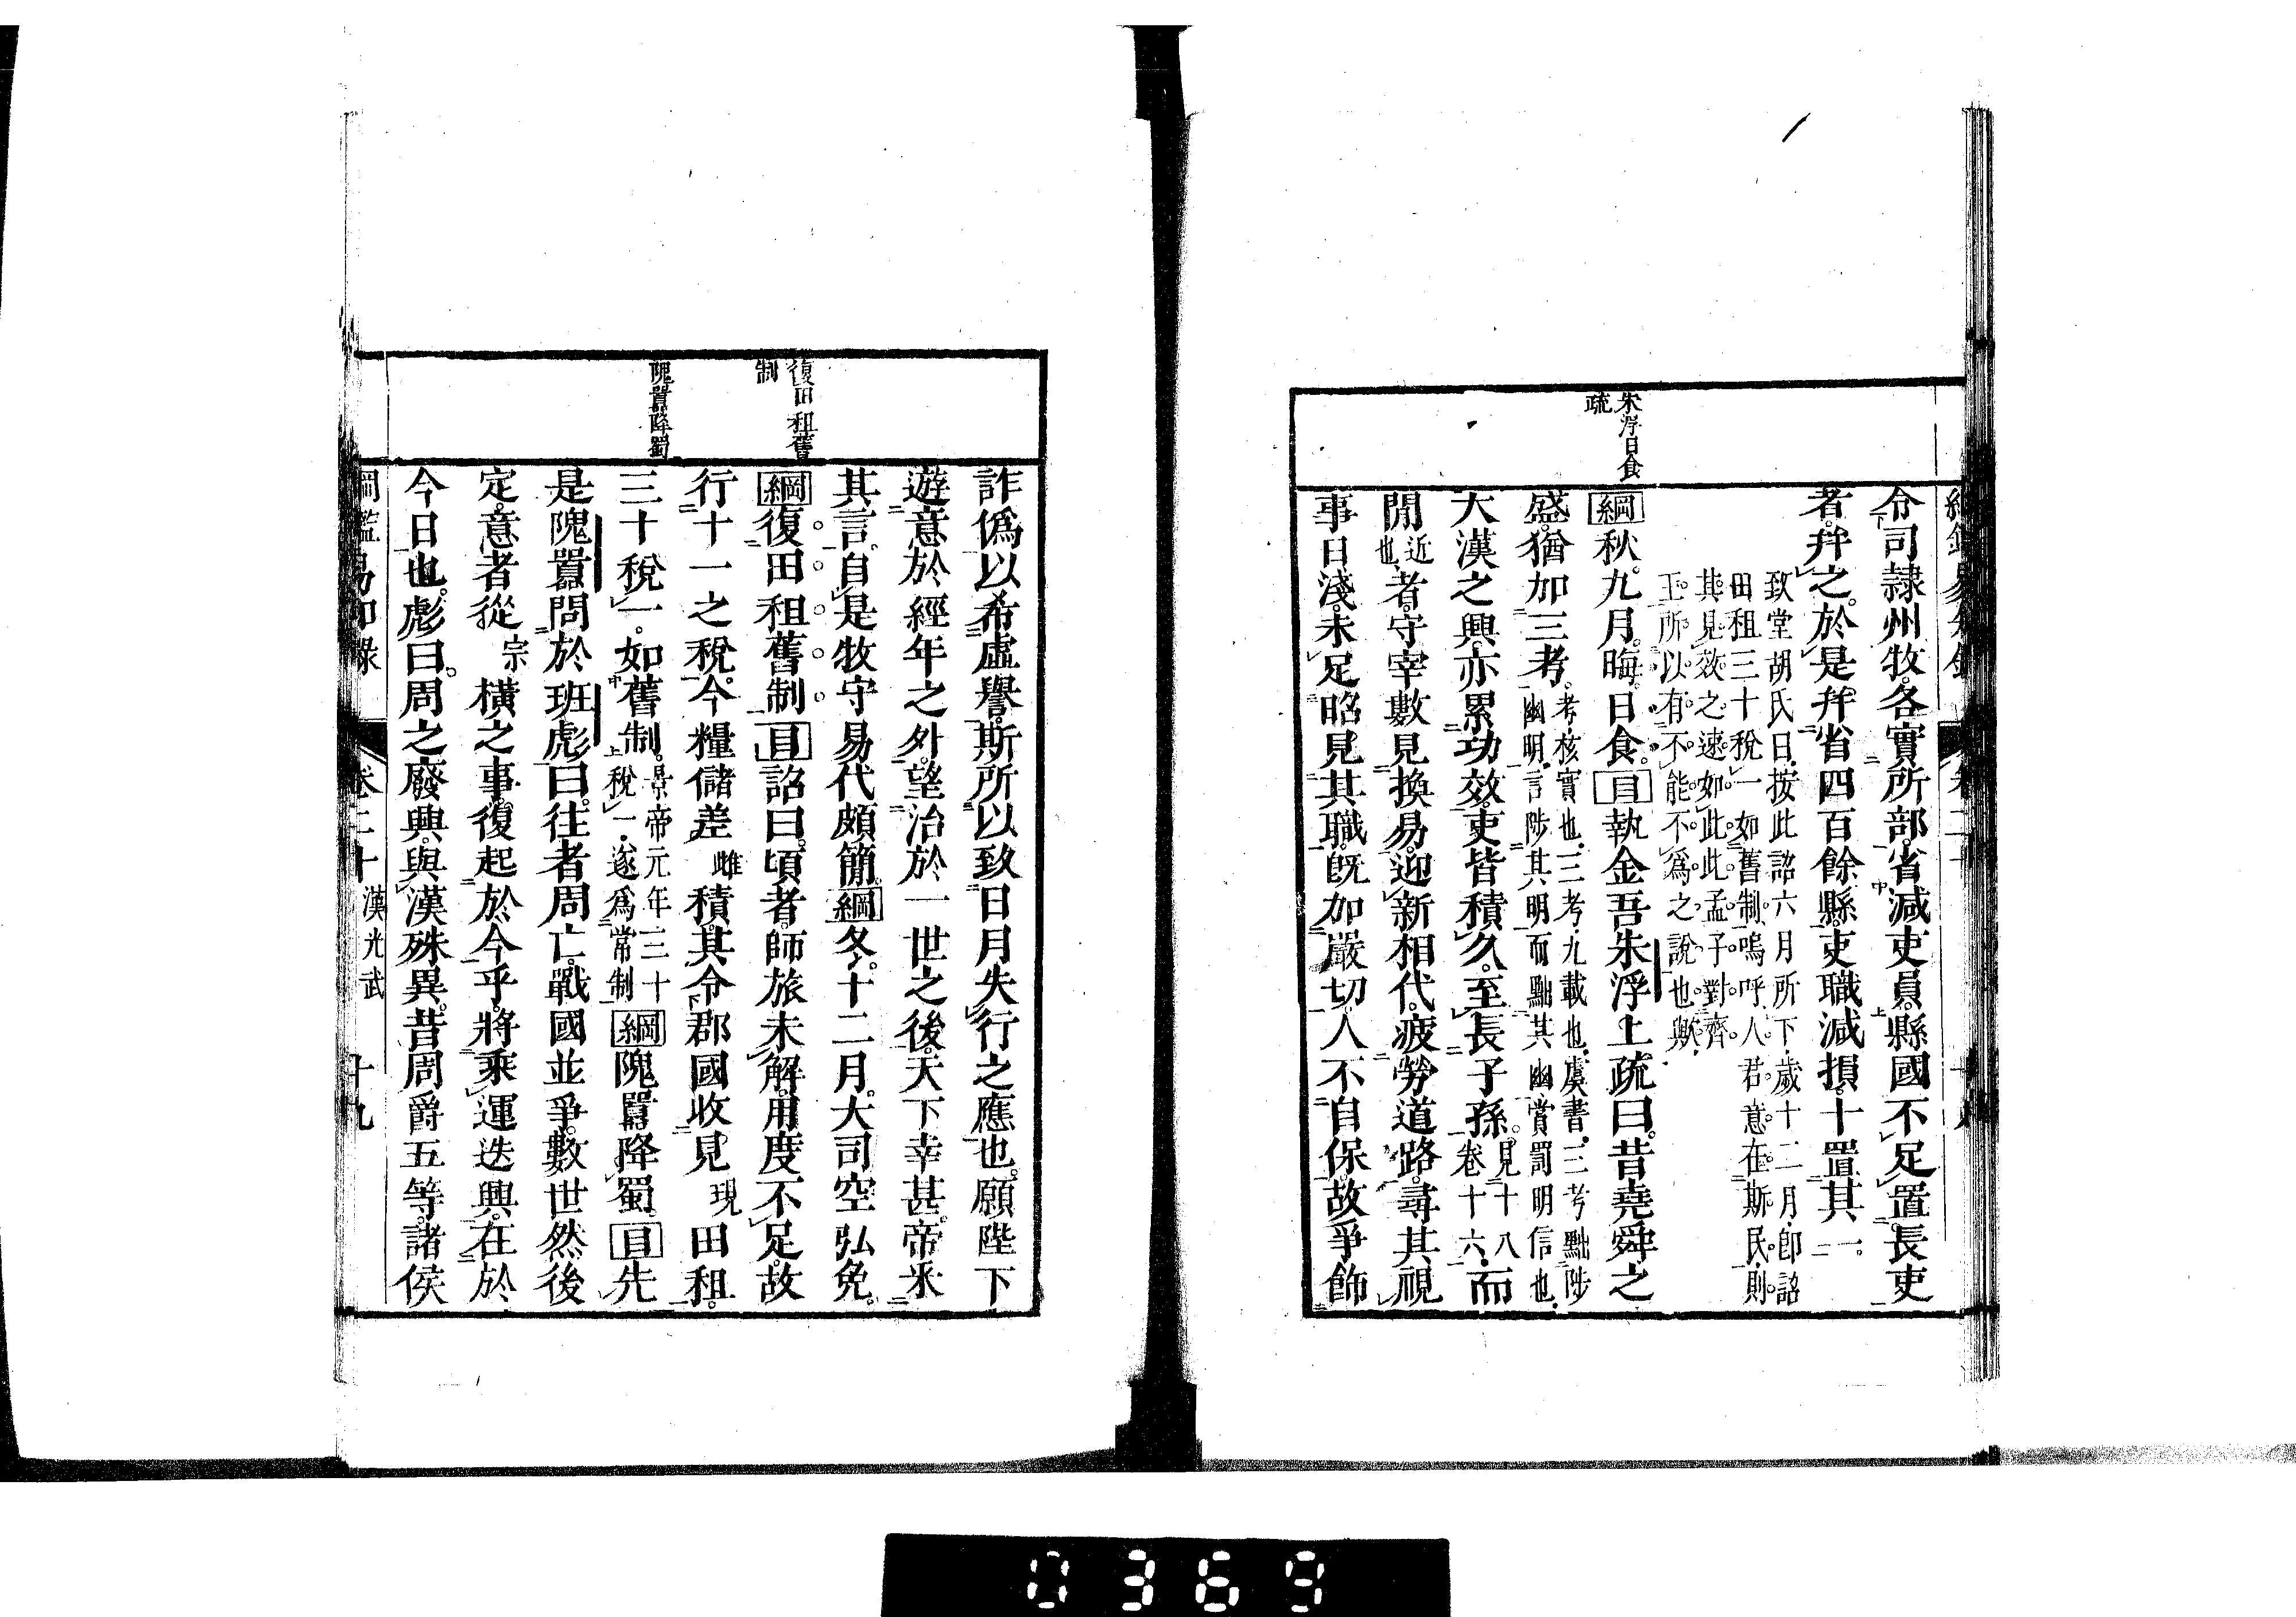 朱浮日食
疏
令司隷州牧各實所部省減吏員縣國不足置長吏
者幷之於是幷省四百餘縣吏職減損十置其一
致堂胡氏曰按此詔六月所下歲十二月卽詔
田租三十稅一如舊制嗚呼人君意在斯民則
其見效之速如此此孟子對齊
王所以有不能不爲之說也歟
綱秋九月晦日食目執金吾朱浮上疏曰昔堯舜之
盛猶加三考考核實也三考九載也虞書三考黜陟
幽明言陟其明而黜其幽賞罰明信也
大漢之興亦累功效吏皆積久至長子孫見十八
卷十六而
閒近
也者守宰數見換易迎新相代疲勞道路尋其視
事日淺未足昭見其職旣加嚴切人不自保故爭飾
復田租舊
制
隗囂降蜀
詐僞以希虛譽斯所以致日月失行之應也願陛下
遊意於經年之外望治於一世之後天下幸甚帝采
其言自是牧守易代頗簡綱冬十二月大司空弘免
綱復田租舊制目詔曰頃者師旅未解用度不足故
行十一之稅今糧儲差雌積其令郡國收見現田租
三十稅一如舊制景帝元年三十
稅一遂爲常制綱隗囂降蜀目先
是隗囂問於班彪曰往者周亡戰國並爭數世然後
定意者從宗橫之事復起於今乎將乘運迭興在於
今日也彪曰周之廢興與漢殊異昔周爵五等諸侯
綱鑑易知錄 卷二十 漢光武 十九
0369